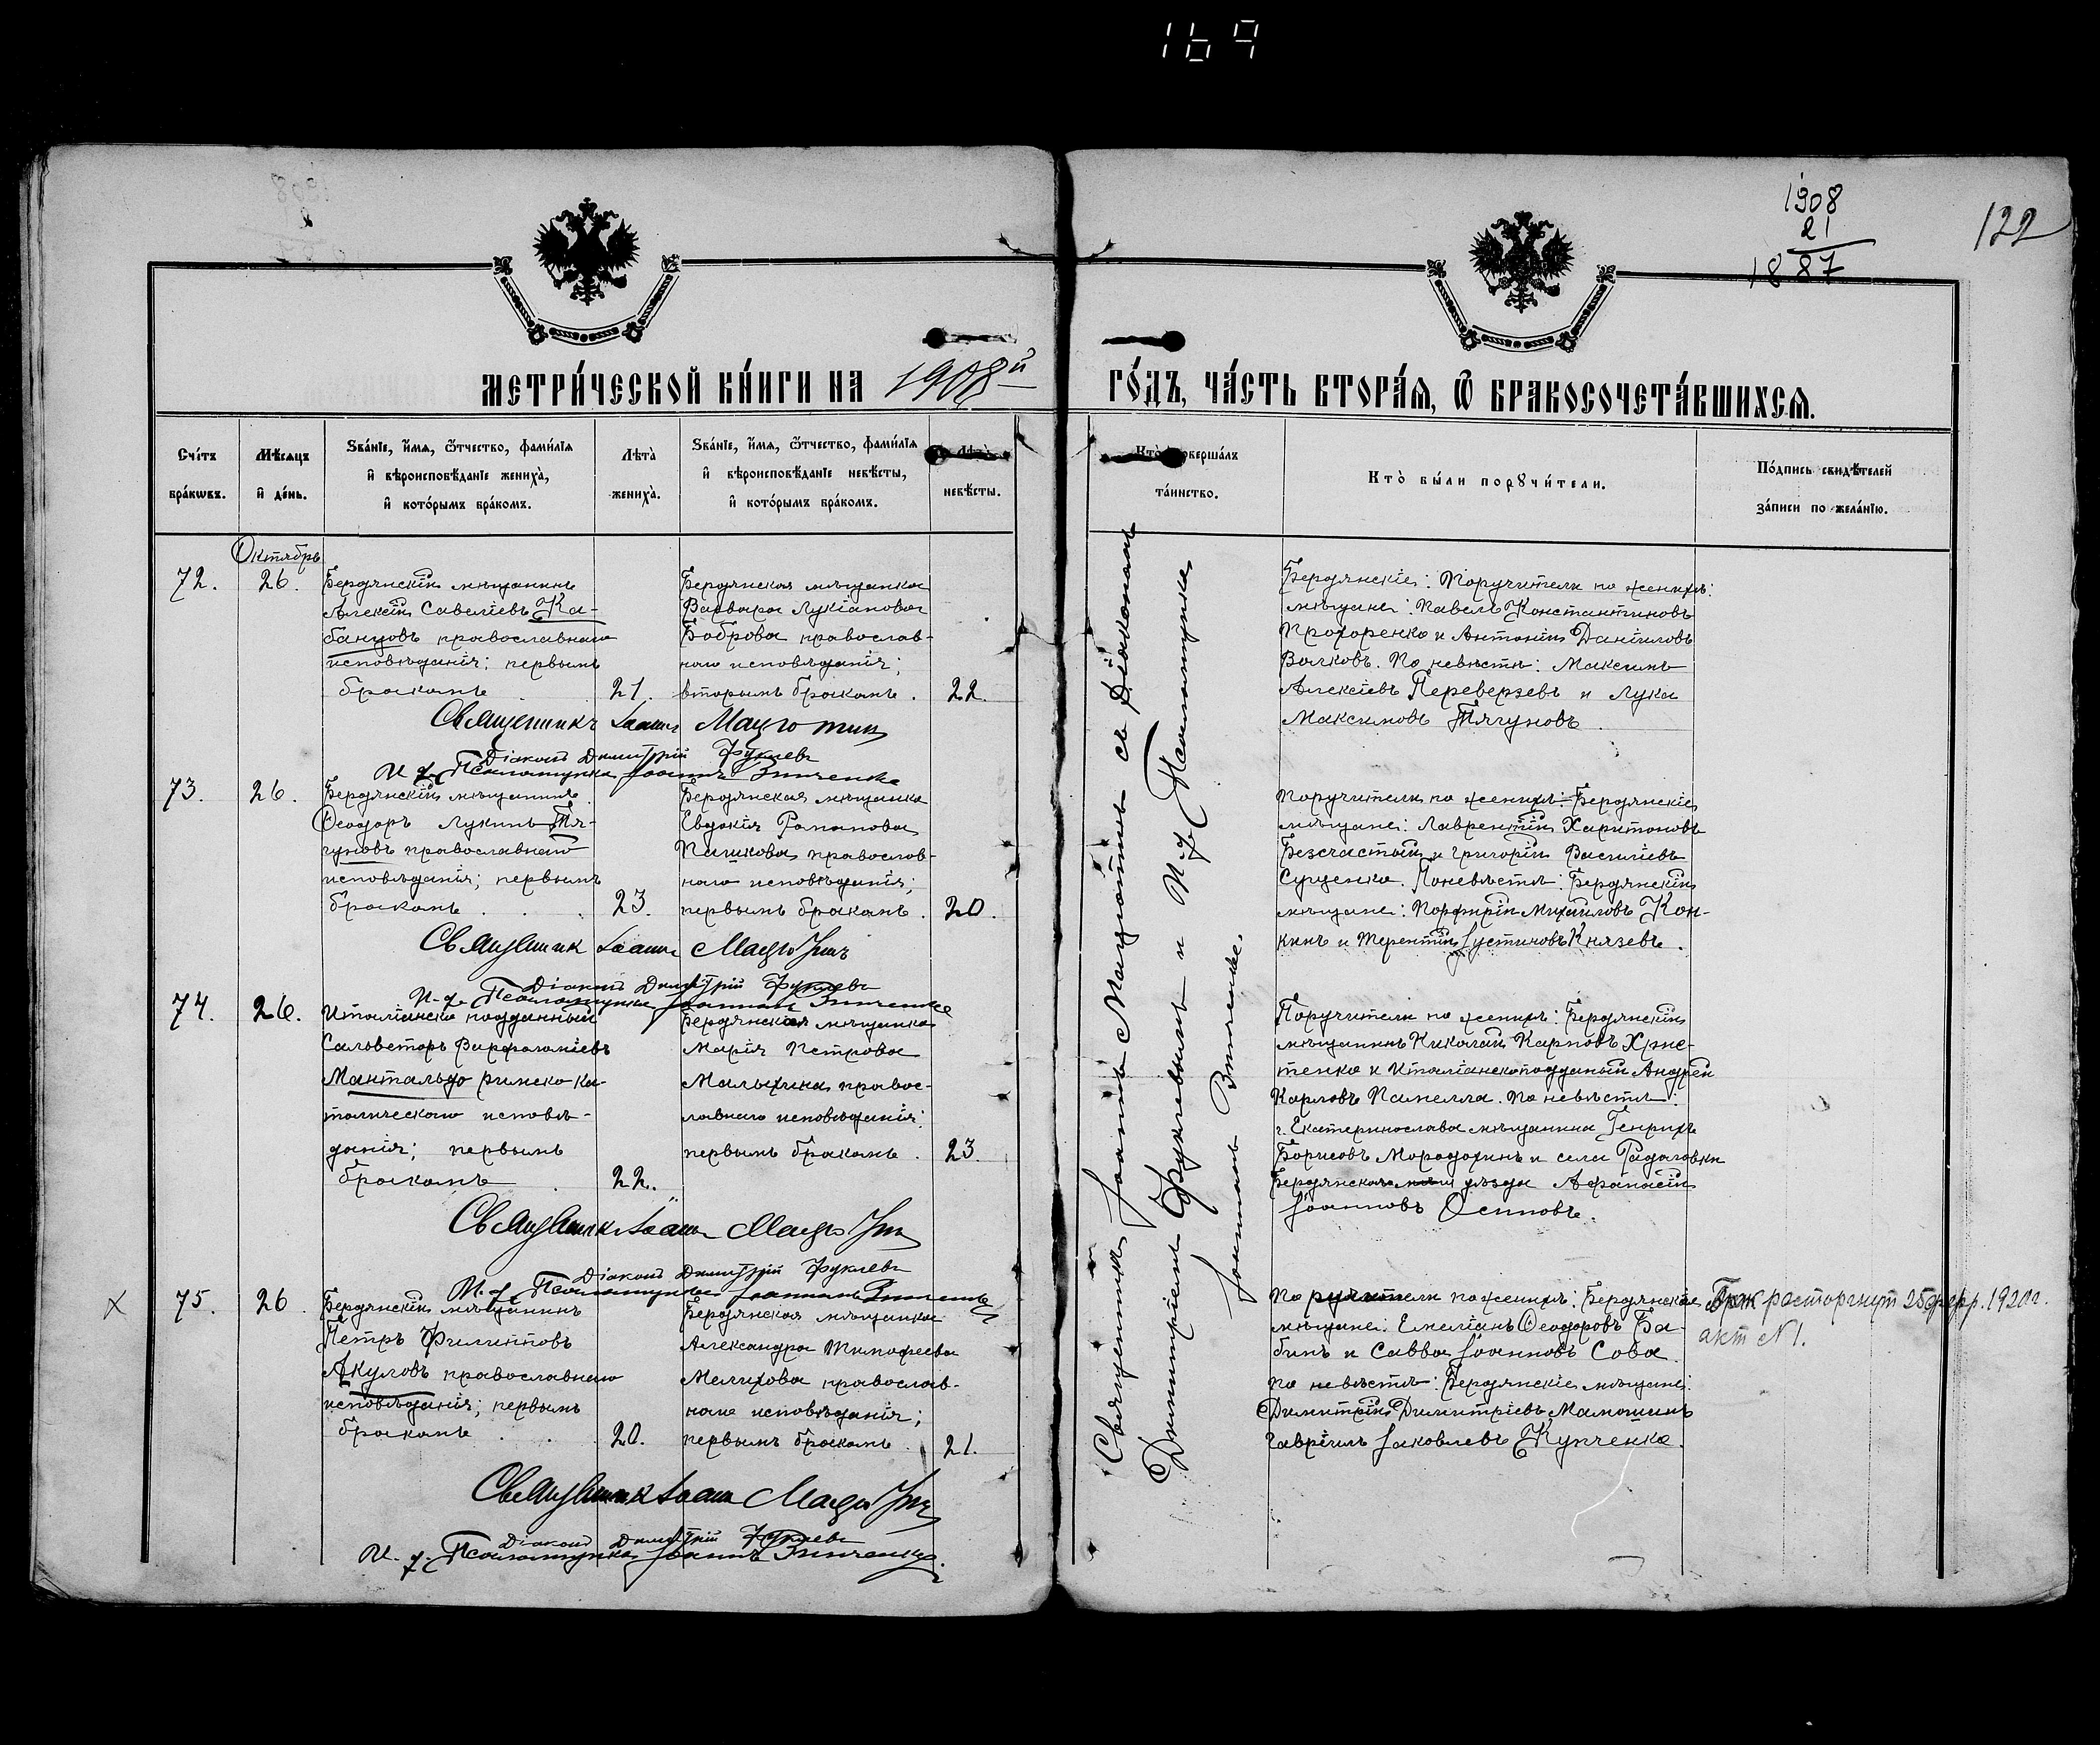 169
1908
21
1887
122
МЕТРИ́ЧЕСКОЙ КНИ́ГИ НА 1908й
ГО́ДЪ, ЧА́СТЬ ВТОРА́Я, Ѿ БРАКОСОЧЕТА́ВШИХСЯ.
Счётъ бра́кѡвъ.
Мѣ́сяцъ и де́нь.
Зва́нїе, и́мя, ѻ́тчество, фами́лїя и вѣроисповѣ́данїе жениха̀, и кото́рымъ бра́комъ.
Лѣта̀ жениха̀.
Зва́нїе, и́мя, ѻ́тчество, фами́лїя и вѣроисповѣ́данїе невѣ́сты, и кото́рымъ бра́комъ.
Лѣта̀ невѣ́сты.
Кто̀ соверша́лъ та́инство.
Кто̀ бы́ли порꙋчи́тели.
По́дпись свидѣ́телей за́писи по жела́нїю.
Октябрь
72.
26.
Бердянскій мѣщанинъ
Алексій Савеліевъ Ка-
банцовъ православнаго
исповѣданія; первымъ
бракомъ
21.
Бердянская мѣщанка
Варвара Лукіановна
Боброва православ-
наго исповѣданія;
вторымъ бракомъ.
22.
Бердянскіе: Поручители по женихѣ:
мѣщане: Павелъ Константиновъ
Прохоренко и Антоній Даніиловъ
Волковъ. По невѣстѣ: Максимъ
Алексіевъ Переверзевъ и Лука
Максимовъ Тягуновъ.
Священникъ Іоаннъ
Діаконъ Димитрій
И. д. Псаломщика Іоаннъ
73.
26.
Бердянскій мѣщанинъ
Ѳеодоръ Лукинъ Тя-
гуновъ православнаго
исповѣданія; первымъ
бракомъ
23.
Бердянская мѣщанка
Евдокія Романова
Пашкова православ-
наго исповѣданія;
первымъ бракомъ.
20.
Поручители по женихѣ: Бердянскіе
мѣщане: Лаврентій Харитоновъ
Безсчастный и Григорій Василіевъ
Сущенко. По невѣстѣ: Бердянскіе
мѣщане: Порфирій Михайловъ Кон-
кинъ и Терентій Іустиновъ Князевъ.
Священникъ Іоаннъ
Діаконъ Димитрій
И. д. Псаломщика Іоаннъ
74.
26.
Италіанско подданный
Сальветоръ Варфоломіевъ
Мантальдо римско ка-
толическаго исповѣ-
данія; первымъ
бракомъ
22.
Бердянская мѣщанка
Марія Петрова
Малыхина правос-
лавнаго исповѣданія;
первымъ бракомъ.
23.
Поручители по женихѣ: Бердянскій
мѣщанинъ Николай Карповъ
и Италіанскоподданый Андрей
Карловъ Панелла. По невѣстѣ:
г. Екатеринослава мѣщанина Генрихъ
Борисовъ и села
Бердянскаго уѣзда Аѳанасій
Іоанновъ Осиповъ.
Священникъ Іоаннъ
Діаконъ Димитрій
И. д. Псаломщика Іоаннъ
х 75.
26
Бердянскій мѣщанинъ
Петръ Филипповъ
Акуловъ православнаго
исповѣданія; первымъ
бракомъ
20.
Бердянская мѣщанка
Александра Тимофеева
Мелихова православ-
наго исповѣданія;
первымъ бракомъ.
21.
Поручители по женихѣ: Бердянскіе
мѣщане: Емеліанъ Ѳеодоровъ Ба-
бинъ и Савва Іоанновъ Сова
по невѣстѣ: Бердянскіе мѣщане:
Димитрій Димитріевъ Мамошинъ
Гавріилъ Іаковлевъ Купченко.
Брак расторгнут 25 февр. 1920 г.
акт N 1.
Священникъ Іоаннъ
Діаконъ Димитрій
И. д. Псаломщика Іоаннъ
Священникъ Іоаннъ съ Діакономъ
Димитріемъ и И. д. Псаломщика
Іоанномъ